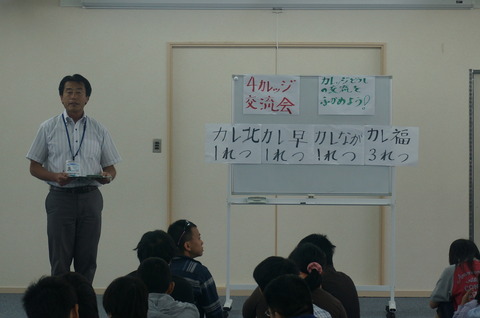 4カレッジ
交流会
カレッジどうし
の交流を
ふかめよう!
カレ北
1れつ
カレ早
1れつ
カレなが
1れつ
カレ福
3れつ